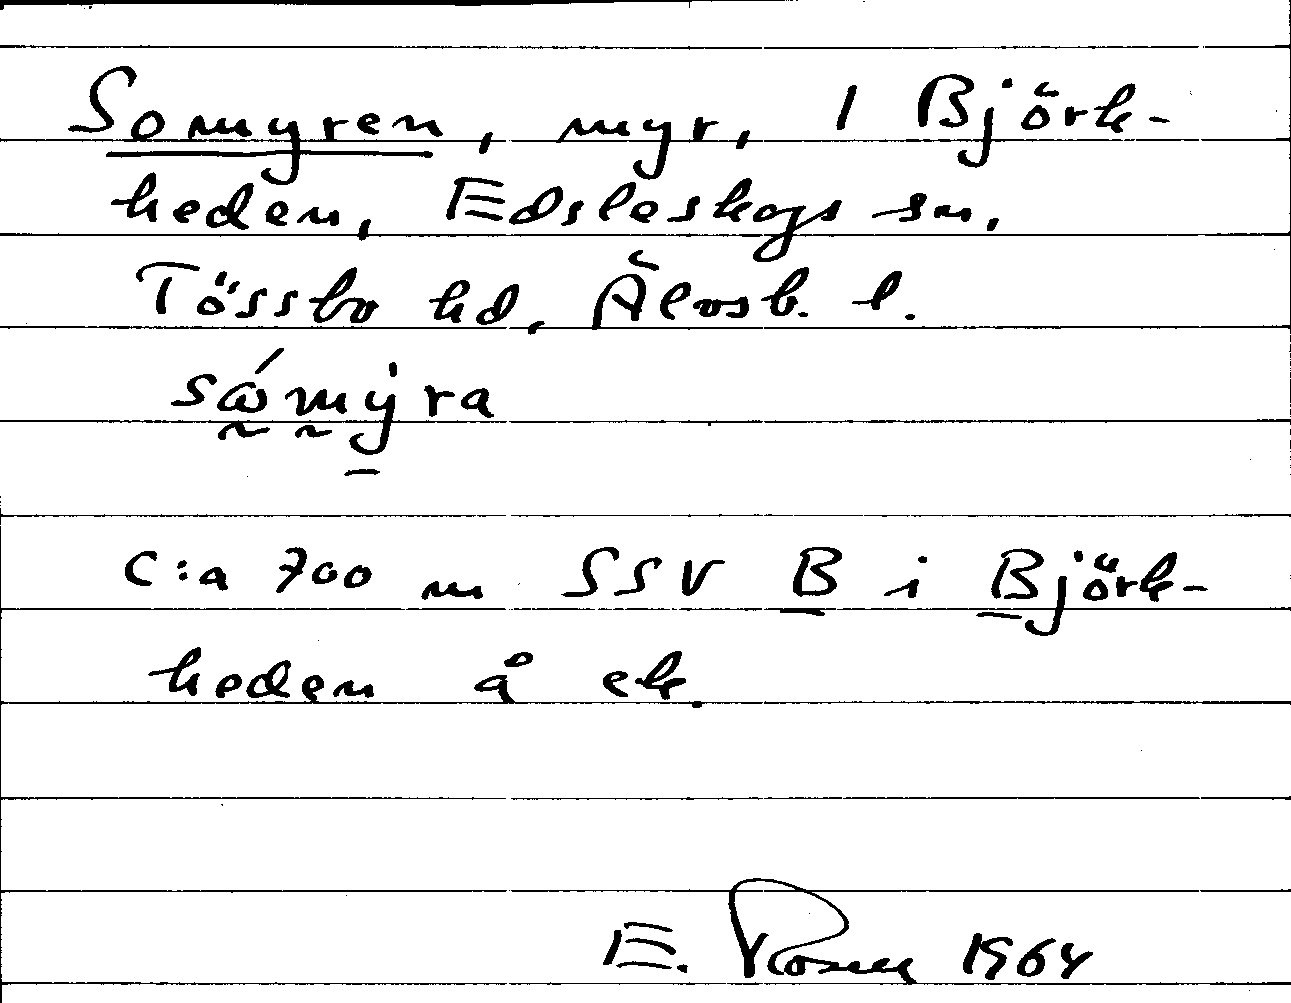 Somyren, myr, 1 Björk-
heden, Edsleskogs sn,
Tössbo hd, Älvsb. l.
c:a 700 m SSV B i Björk-
heden å ek.
E. 1964